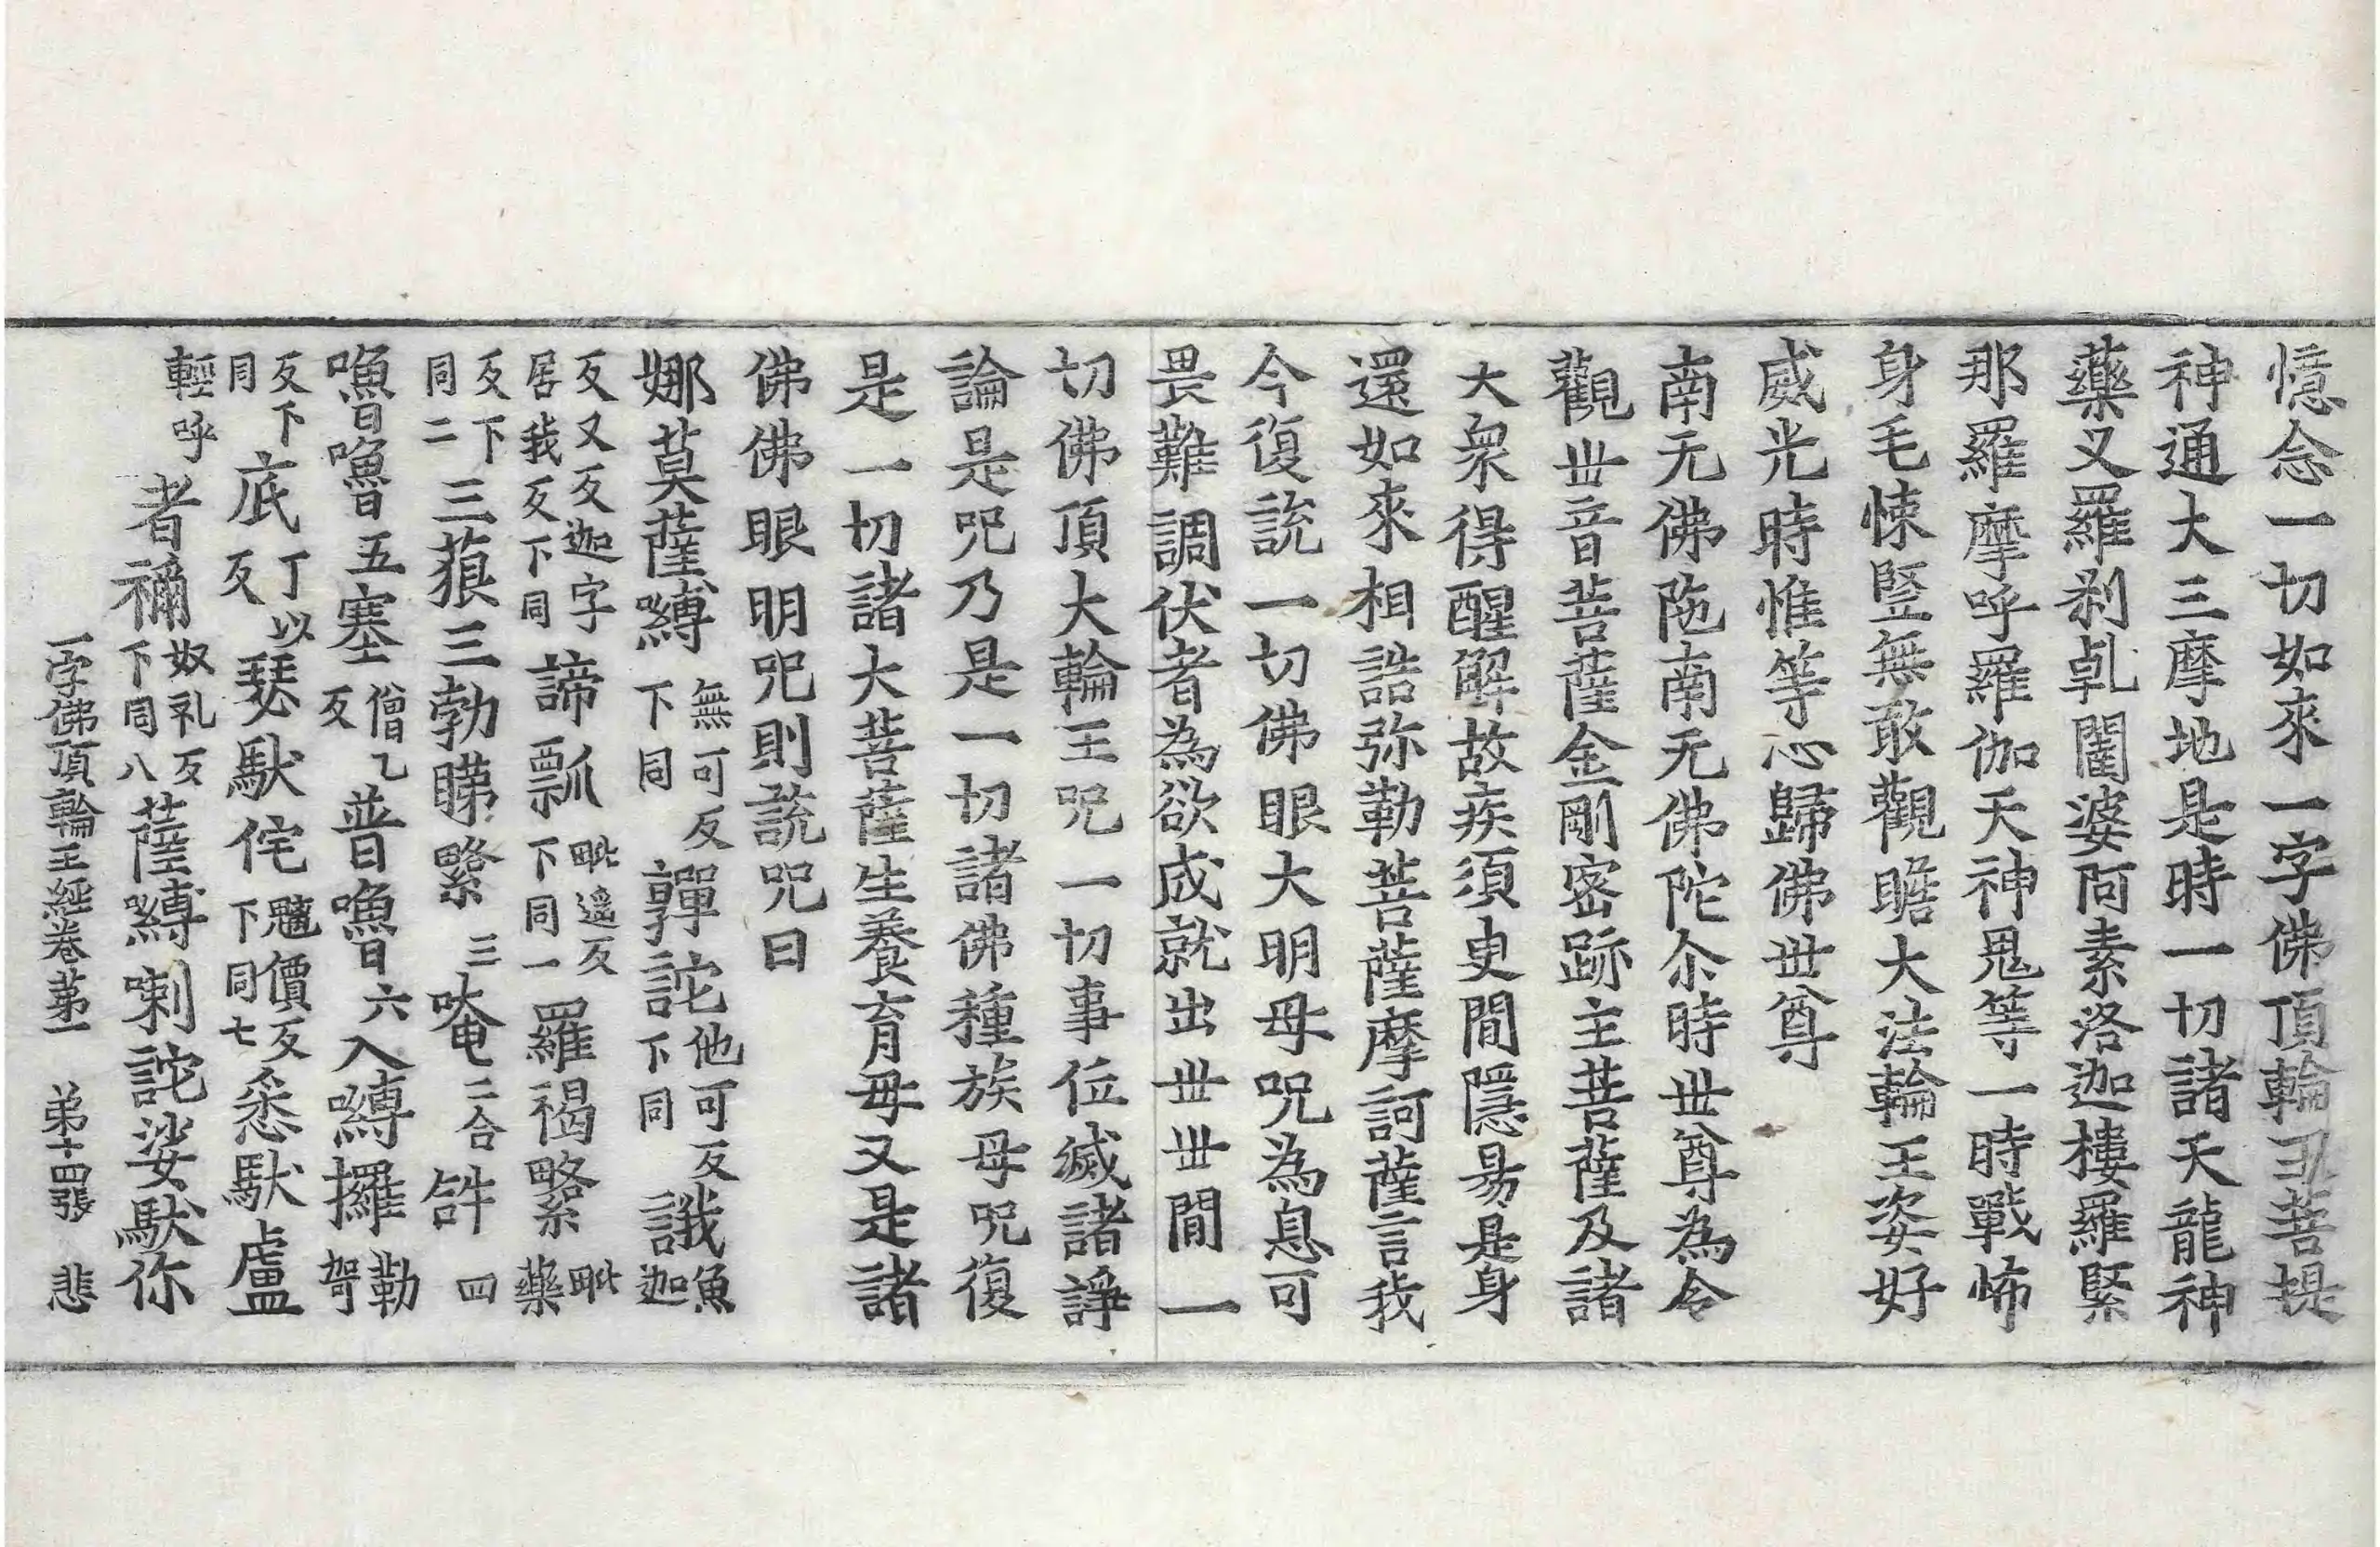 憶念一切如來一字佛頂輪王菩提
神通大三摩地是時一切諸天龍神
藥叉羅剎乹闥婆阿素洛迦樓羅緊
那羅摩呼羅伽天神鬼等一時戰怖
身毛悚竪無敢觀瞻大法輪王姿好
威光時惟等心歸佛世尊
南无佛陁南无佛陀尒時世尊為令
觀世音菩薩金剛密跡主菩薩及諸
大衆得醒解故疾須臾閒隱昜是身
還如來相誥弥勒菩薩摩訶薩言我
今復説一切佛眼大明母呪為息可
畏難調伏者為欲成就出世世閒一
切佛頂大輪王呪一切事位滅諸諍
論是呪乃是一切諸佛種族母呪復
是一切諸大菩薩生養育母又是諸
佛佛眼明呪則説呪曰
娜莫薩嚩無可反下同嚲詑他可反下同誐魚迦
反又反迦字居我反下同諦瓢毗遥反下同一羅褐㗚毗藥
反下同二三藐三勃睇㗚三唵二合㖿四
嚕嚕五塞僧乙反普嚕六入嚩攞勒㗿
反下同底丁以反瑟馱侘魑價反下同七悉馱盧
輕呼者禰奴礼反下同八薩嚩喇詑娑馱你
一字佛頂輪王經卷第一　弟十四張　悲